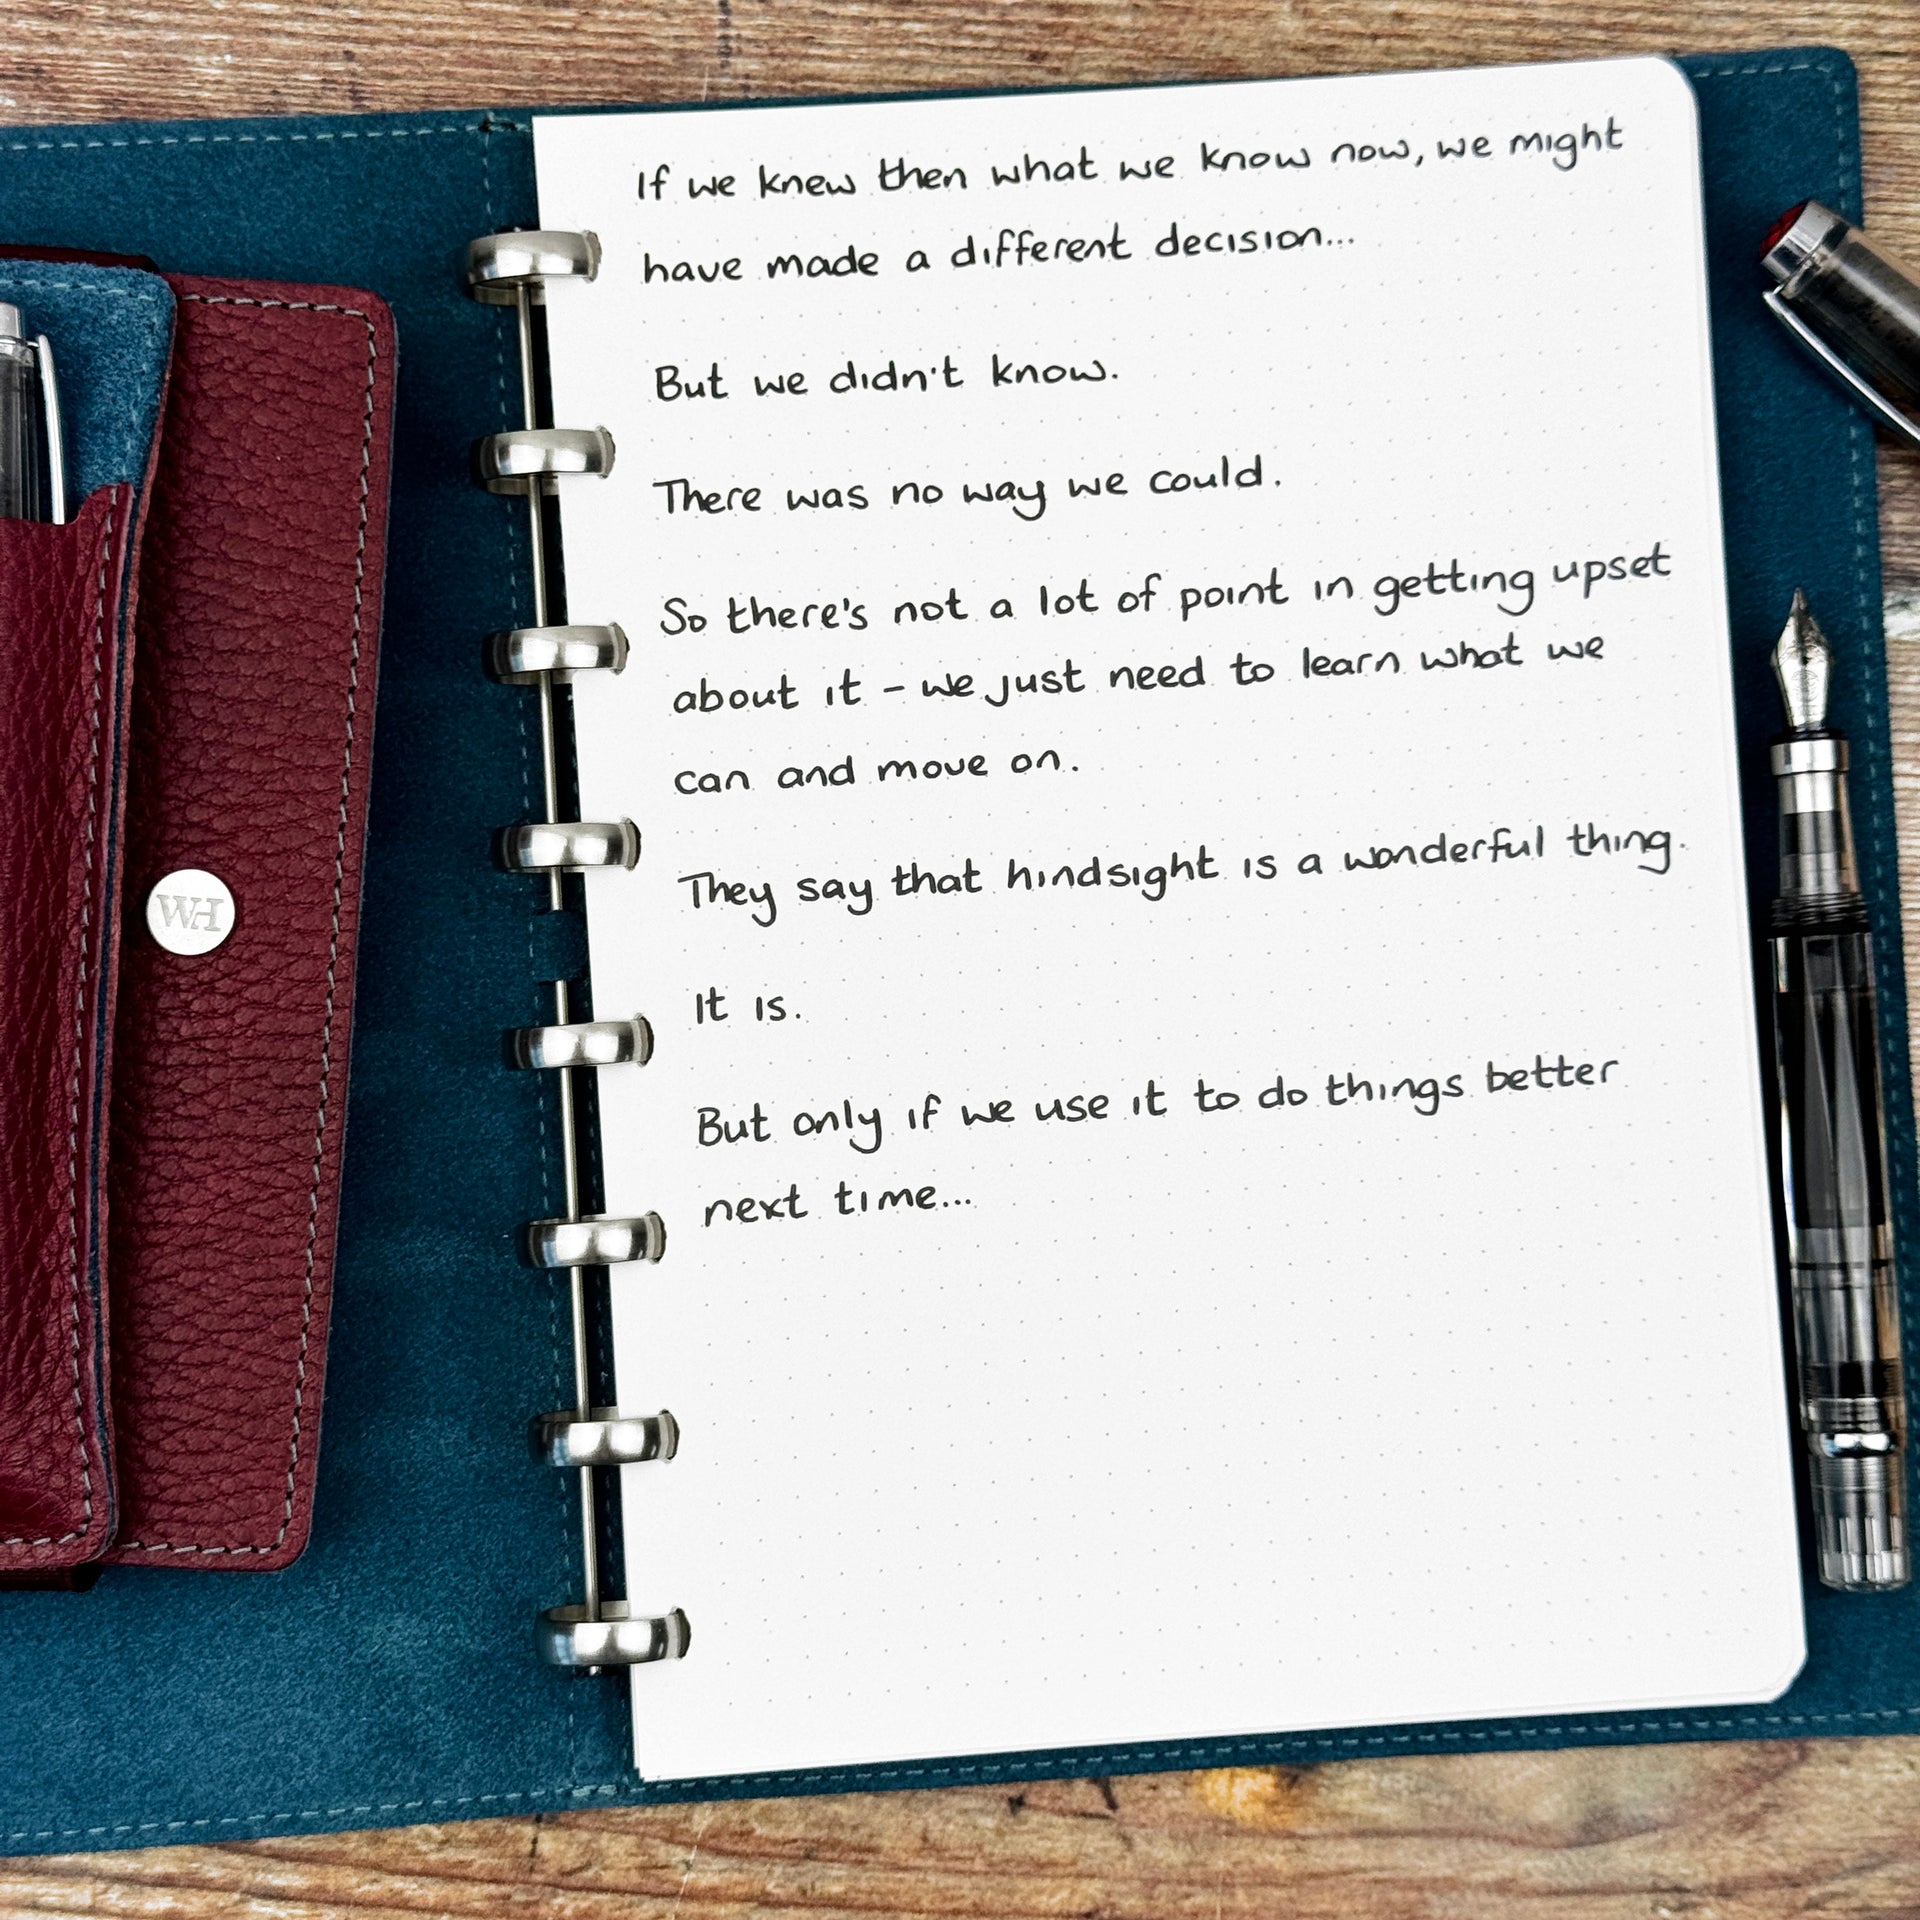 If we knew then what we know now, we might
have made a different decision...
But we didn't know.
There was no way we could.
So there's not a lot of point in getting upset
about it - we just need to learn what we
can and move on.
They say that hindsight is a wonderful thing.
It is.
But only if we use it to do things better
next time...
WH